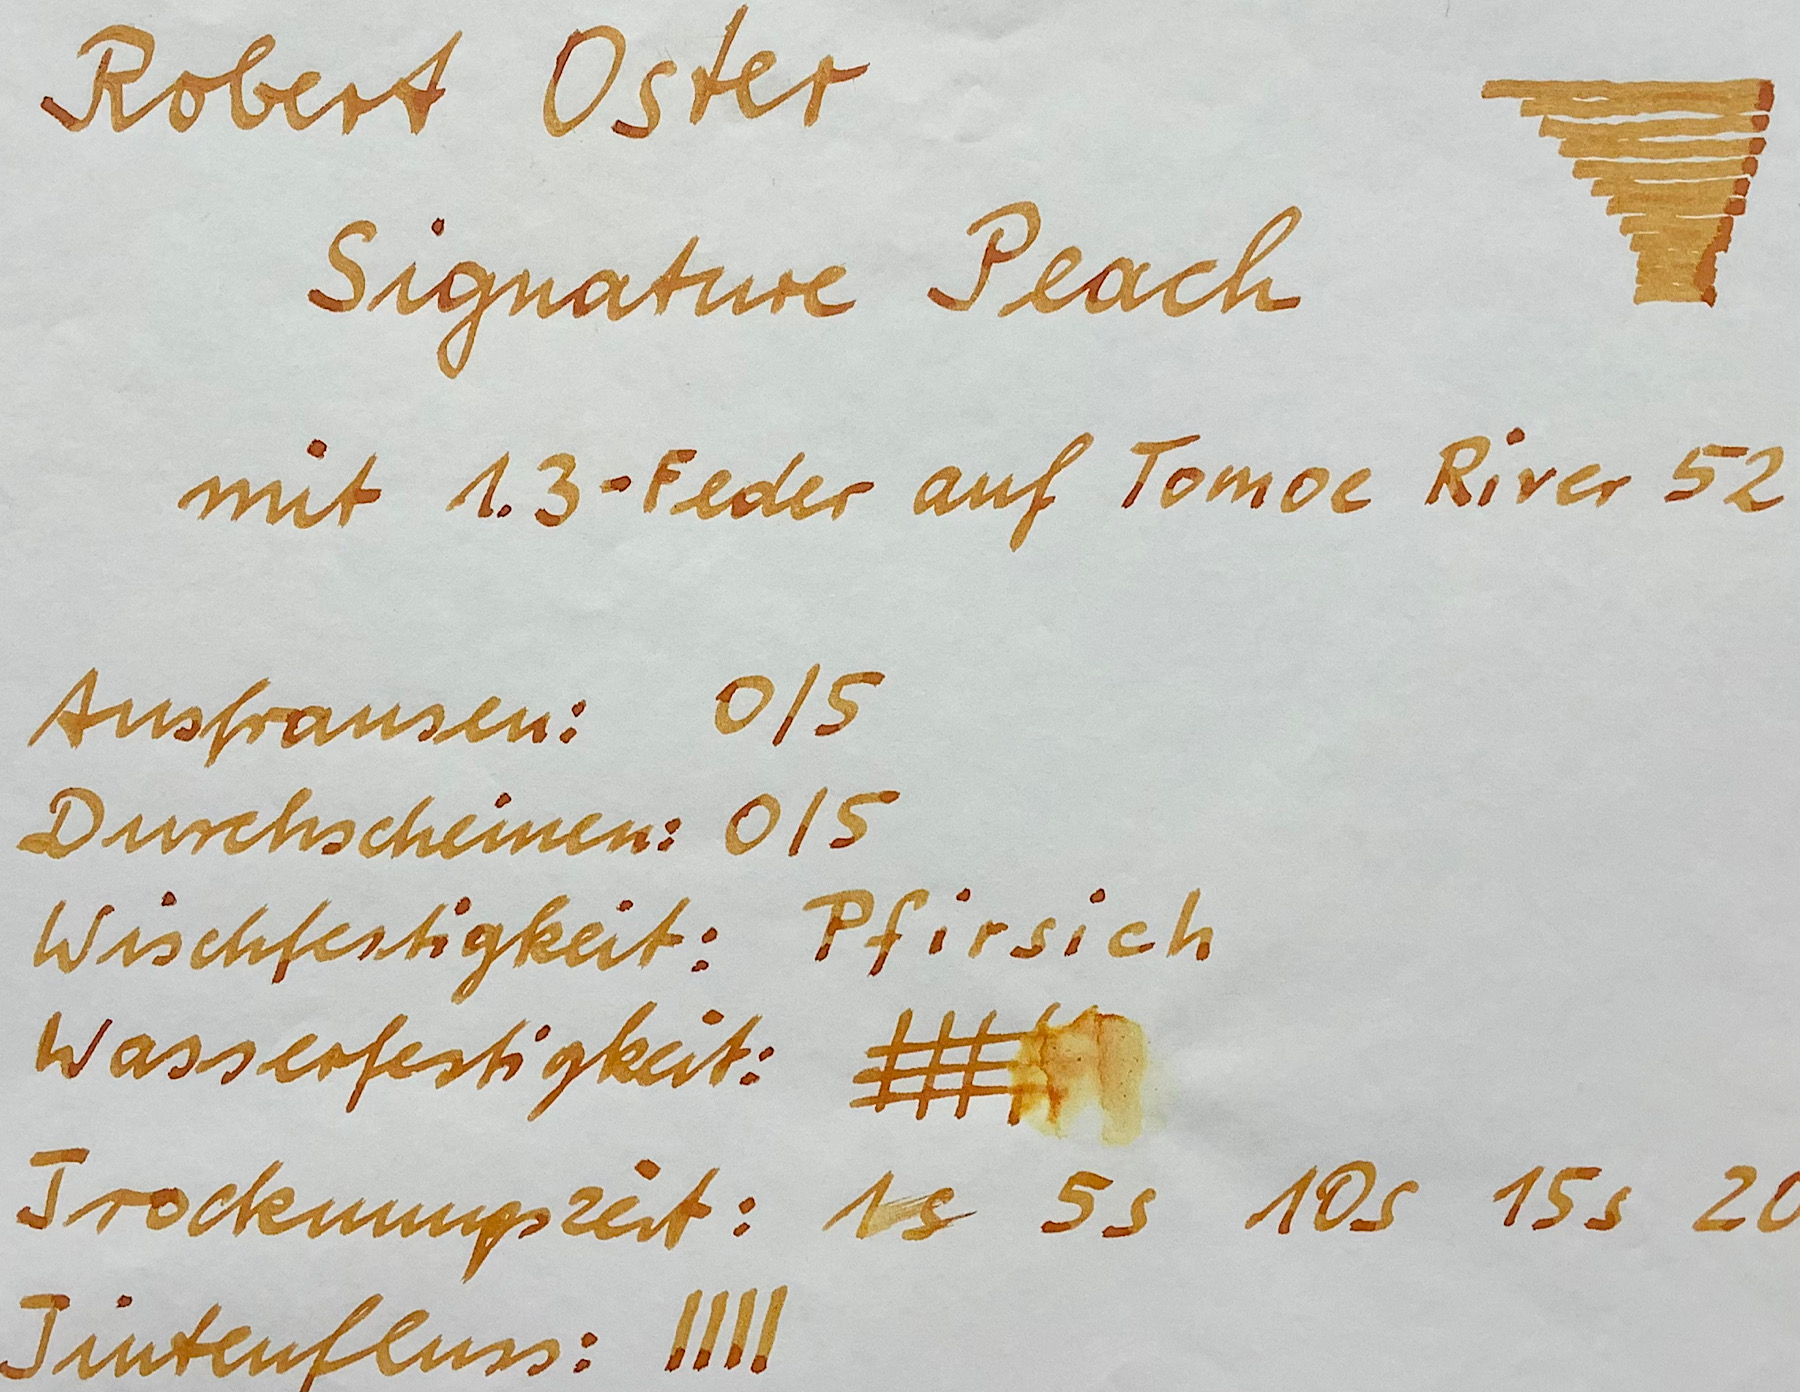 Robert Oster
Signature Peach
mit 1.3-Feder auf Tomoe River 52
Ausfransen: 0/5
Durchscheinen: 0/5
Wischfestigkeit: Pfirsich
Wasserfestigkeit:
Trocknungszeit: 1s 5s 10s 15s 20
Tintenfluss: